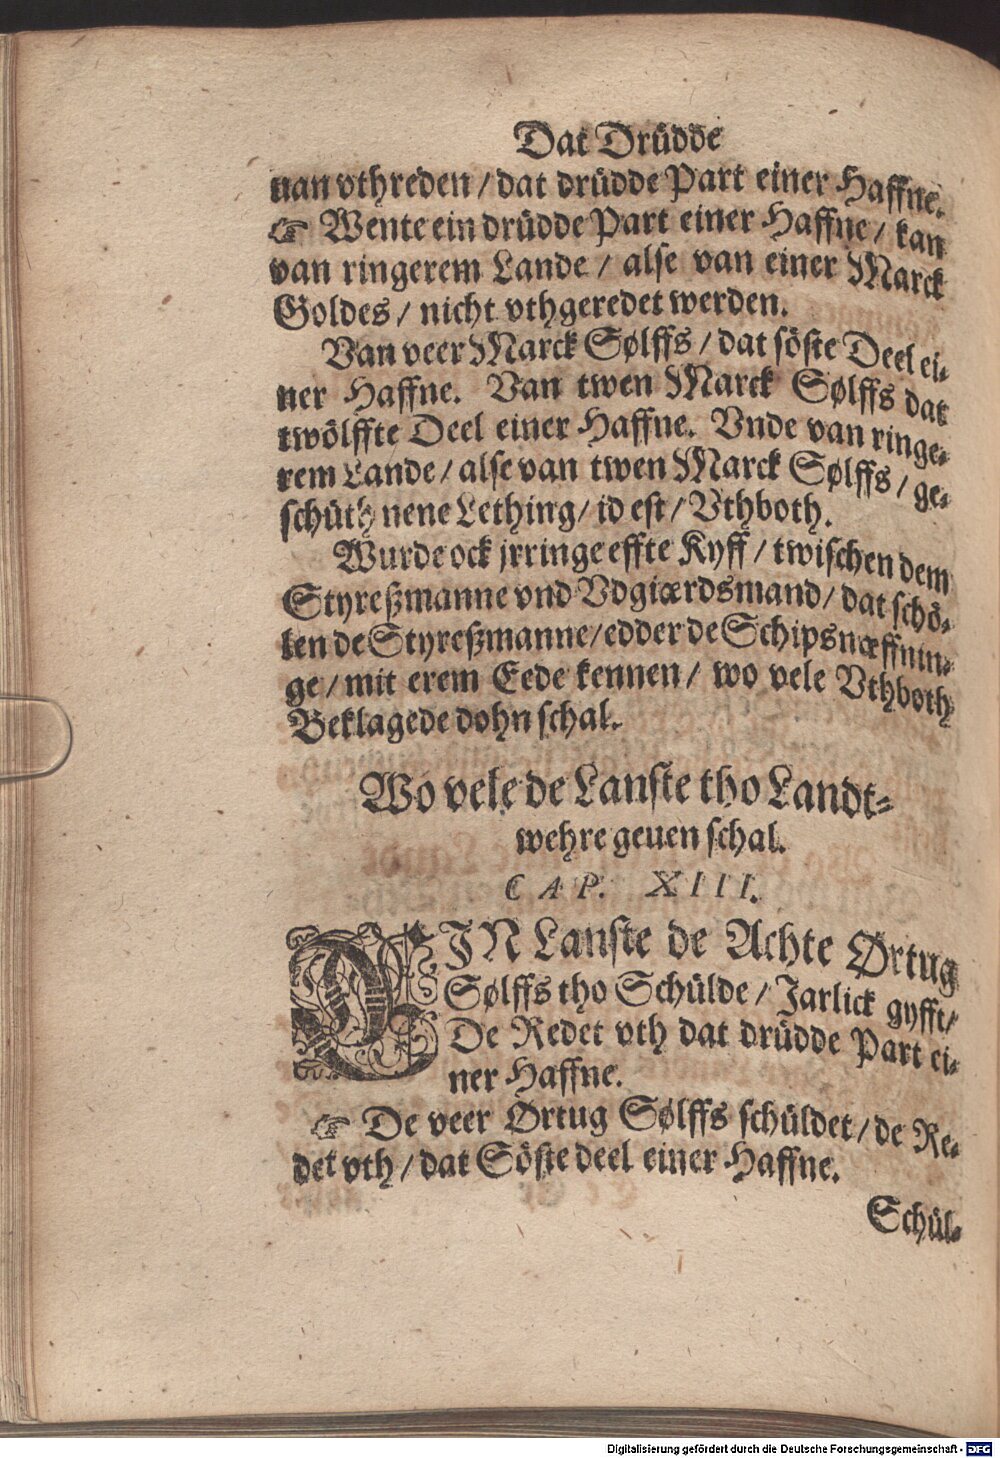 Dat Drüdde
uan vthreden / dat drüdde Part einer Haffne.
☞ Wente ein drüdde Part einer Haffne / kan
van ringerem Lande / alse van einer Marck
Goldes / nicht vthgeredet werden.
Van veer Marck Sølffs / dat söste Deel ei-
ner Haffne. Van twen Marck Sølffs dat
twölffte Deel einer Haffne. Vnde van ringe-
rem Lande / alse van twen Marck Sølffs / ge-
schüth nene Lething / id est / Vthboth.
Wurde ock jrringe effte Kyff / twischen dem
Styreßmanne vnd Vdgiærdsmand / dat schö-
len de Styreßmanne / edder de Schipsnæffnin-
ge / mit erem Eede kennen / wo vele Vthboth
Beklagede dohn schal.
Wo vele de Lanste tho Landt-
wehre geuen schal.
CAP. XIII.
EJN Lanste de Achte Ørtug
Sølffs tho Schülde / Jarlick gyfft /
De Redet vth dat drüdde Part ei-
ner Haffne.
☞ De veer Ørtug Sølffs schüldet / de Re-
det vth / dat Söste deel einer Haffne.
Schül-
Digitalisierung gefördert durch die Deutsche Forschungsgemeinschaft - DFG